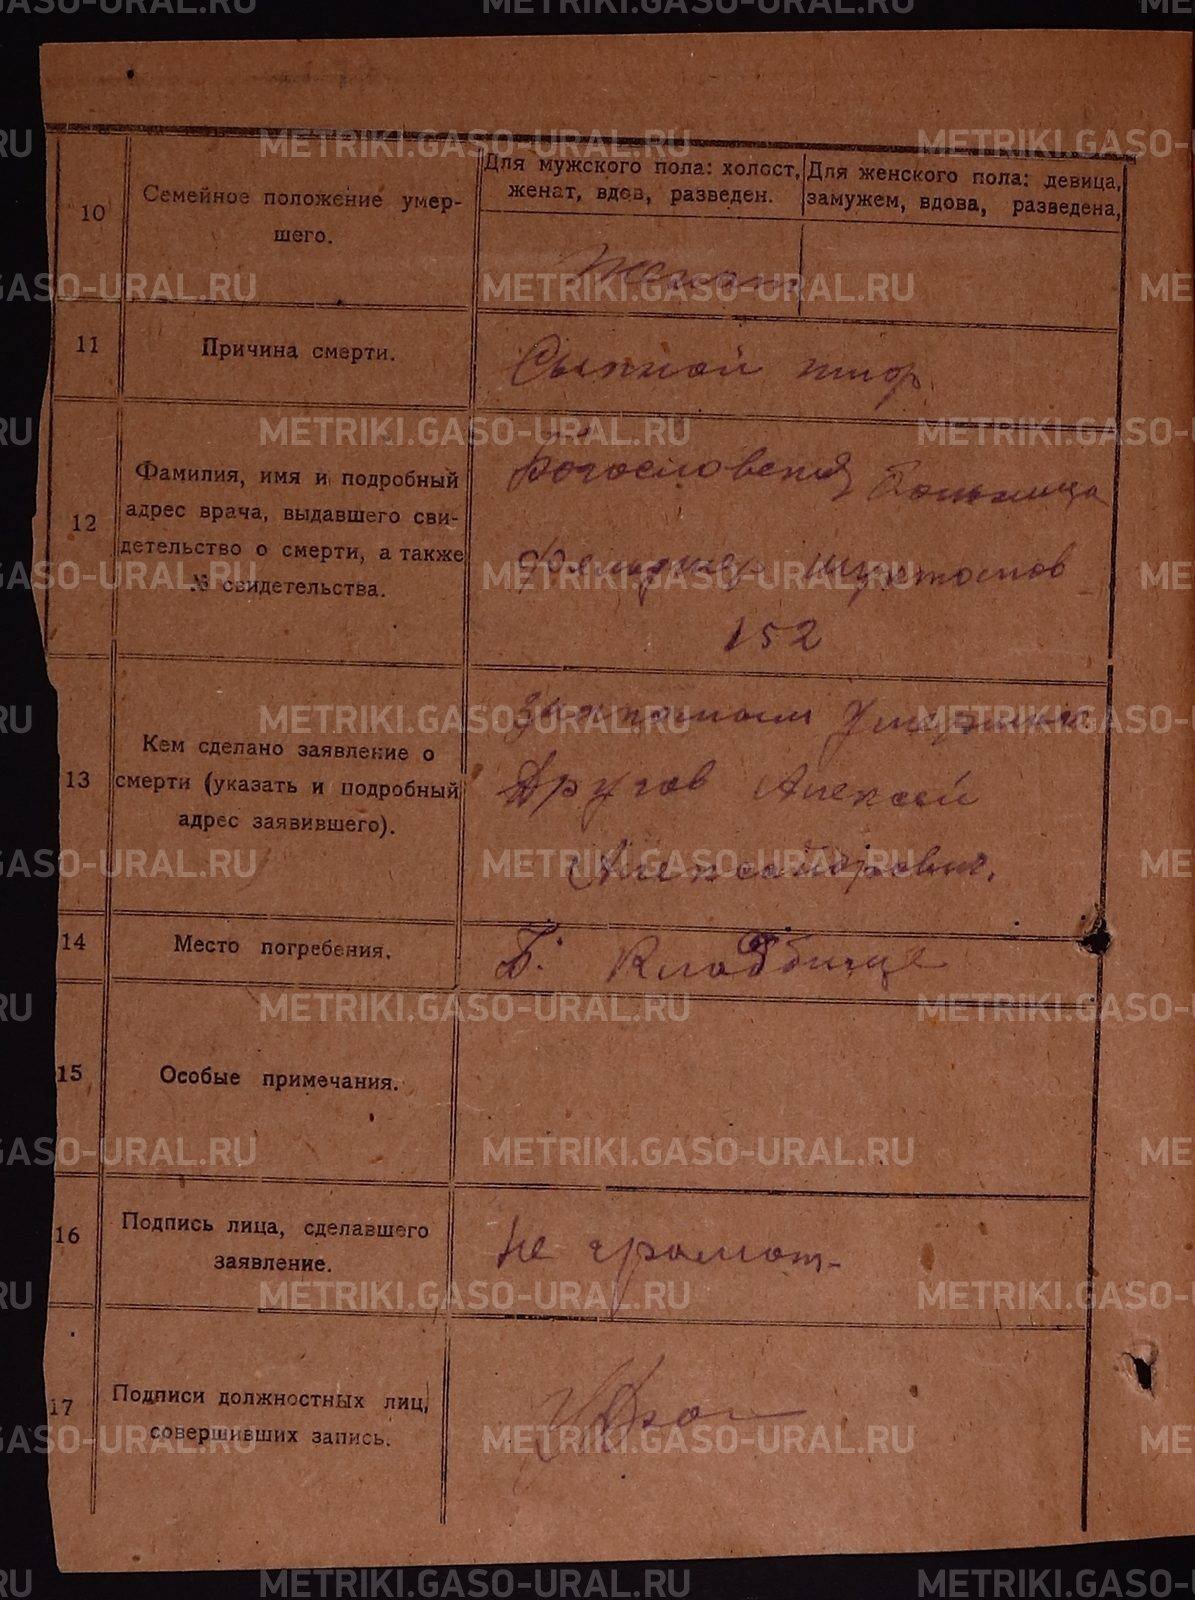 10
Семейное положение умер-
шего.
Для мужского пола: холост,
женат, вдов, разведен.
Для женского пола: девица,
замужем, вдова, разведена,
Женат
11
Причина смерти.
Сыпной тиф
12
Фамилия, имя и подробный
адрес врача, выдавшего сви-
детельство о смерти, а также
№ свидетельства.
Богословская больница
152
13
Кем сделано заявление о
смерти (указать и подробный
адрес заявившего).
Другов Алексей
14
Место погребения.
Б. Кладбище
15
Особые примечания.
16
Подпись лица, сделавшего
заявление.
не грамот-
17
Подписи должностных лиц,
совершивших запись.
METRIKI.GASO-URAL.RU